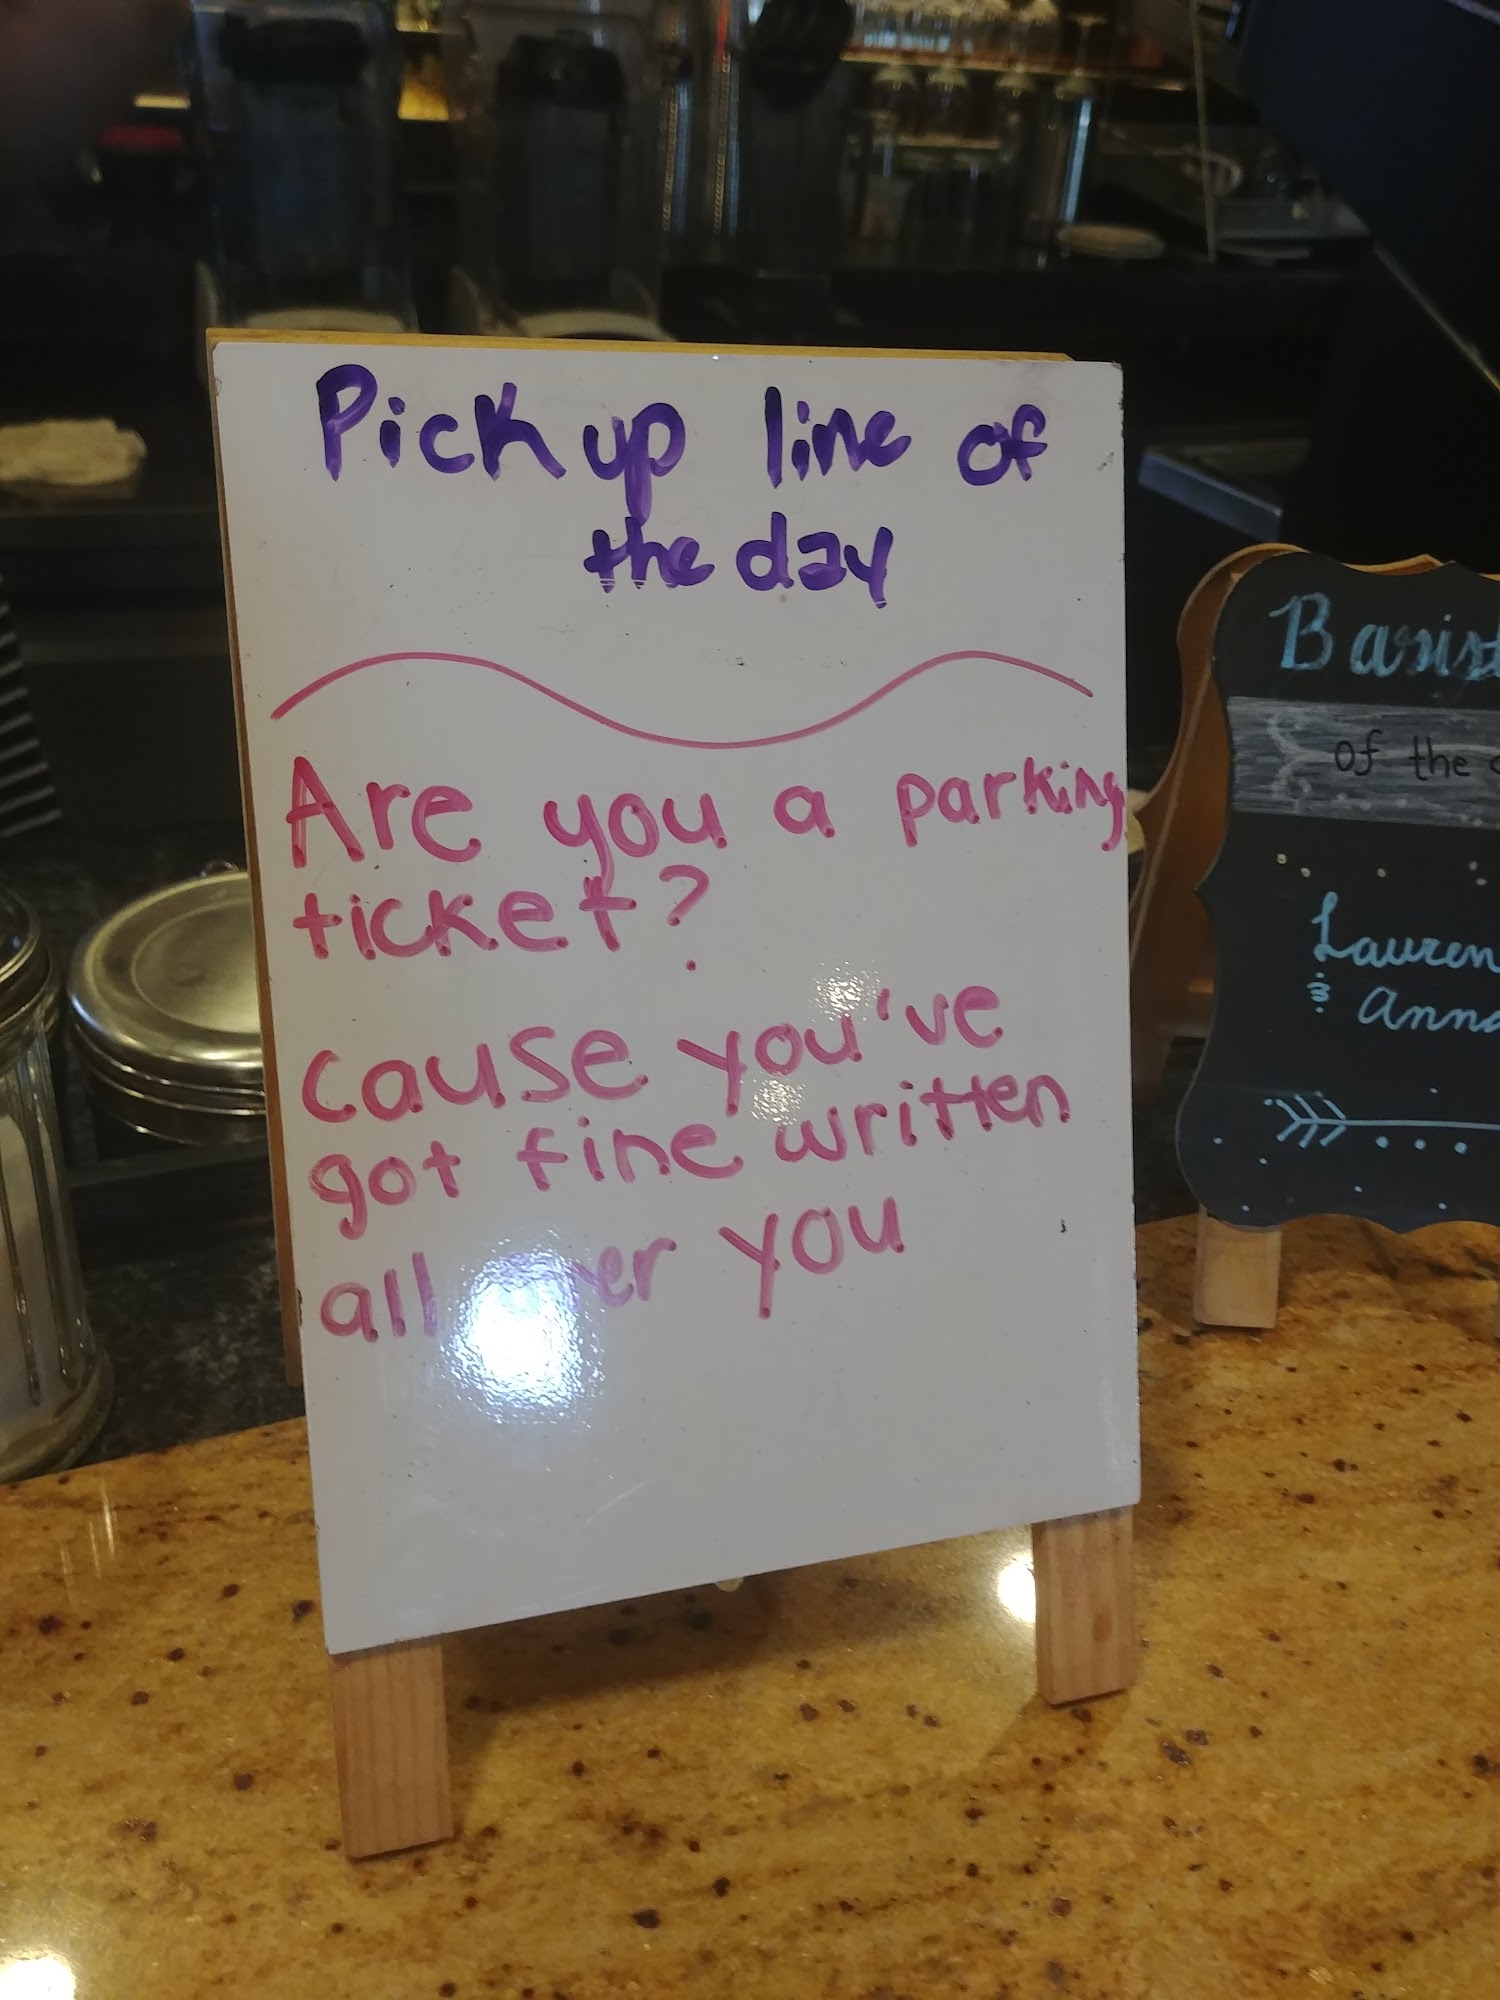 Pick up line of
the day
Are you a parking
ticket?
cause you've
got fine written
all over you
Barist
of the
Lauren
& Anna